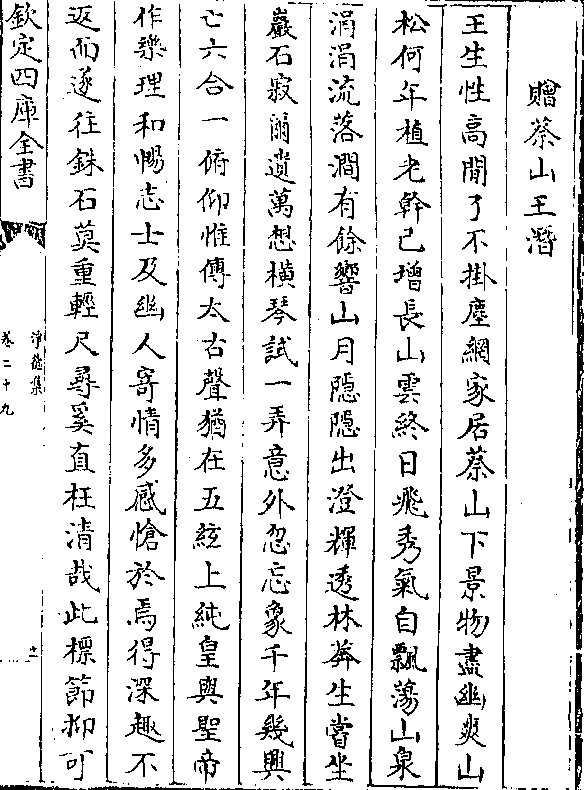 贈蔡山王潛
王生性高閒了不掛塵網家居蔡山下景物盡幽爽山
松何年植老幹已增長山雲終日飛秀氣自飄蕩山泉
涓涓流落澗有餘響山月隱隱出澄輝透林莽生嘗坐
巖石寂爾遺萬想橫琴試一弄意外忽忘象千年幾興
亡六合一俯仰惟傳太古聲猶在五絃上純皇與聖帝
作樂理和暢志士及幽人寄情多感愴於焉得深趣不
返而遂往銖石莫重輕尺尋奚直枉清哉此標節抑可
欽定四庫全書
淨德集
卷二十九
十一